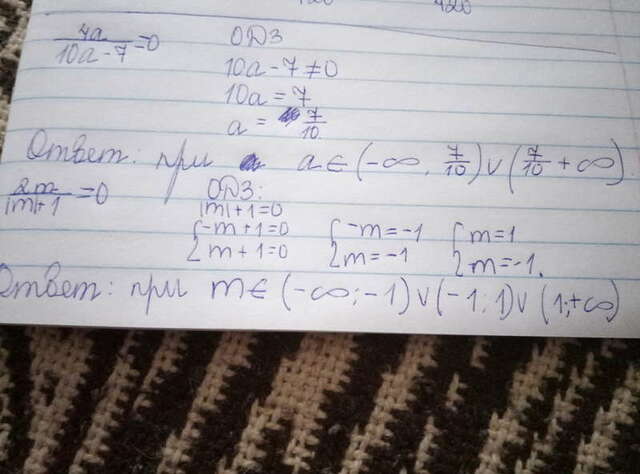 4a/(10a-7)=0 ОДЗ
10a-7≠0
10a=7
a= 7/10
Ответ: при a∈(-∞, 7/10)∨(7/10+∞)
2m/(|m|+1)=0 ОДЗ:
|m|+1=0
{-m+1=0 {-m=-1 {m=1
{m+1=0 {m=-1 {m=-1.
Ответ: при m∈(-∞;-1)∨(-1;1)∨(1;+∞)